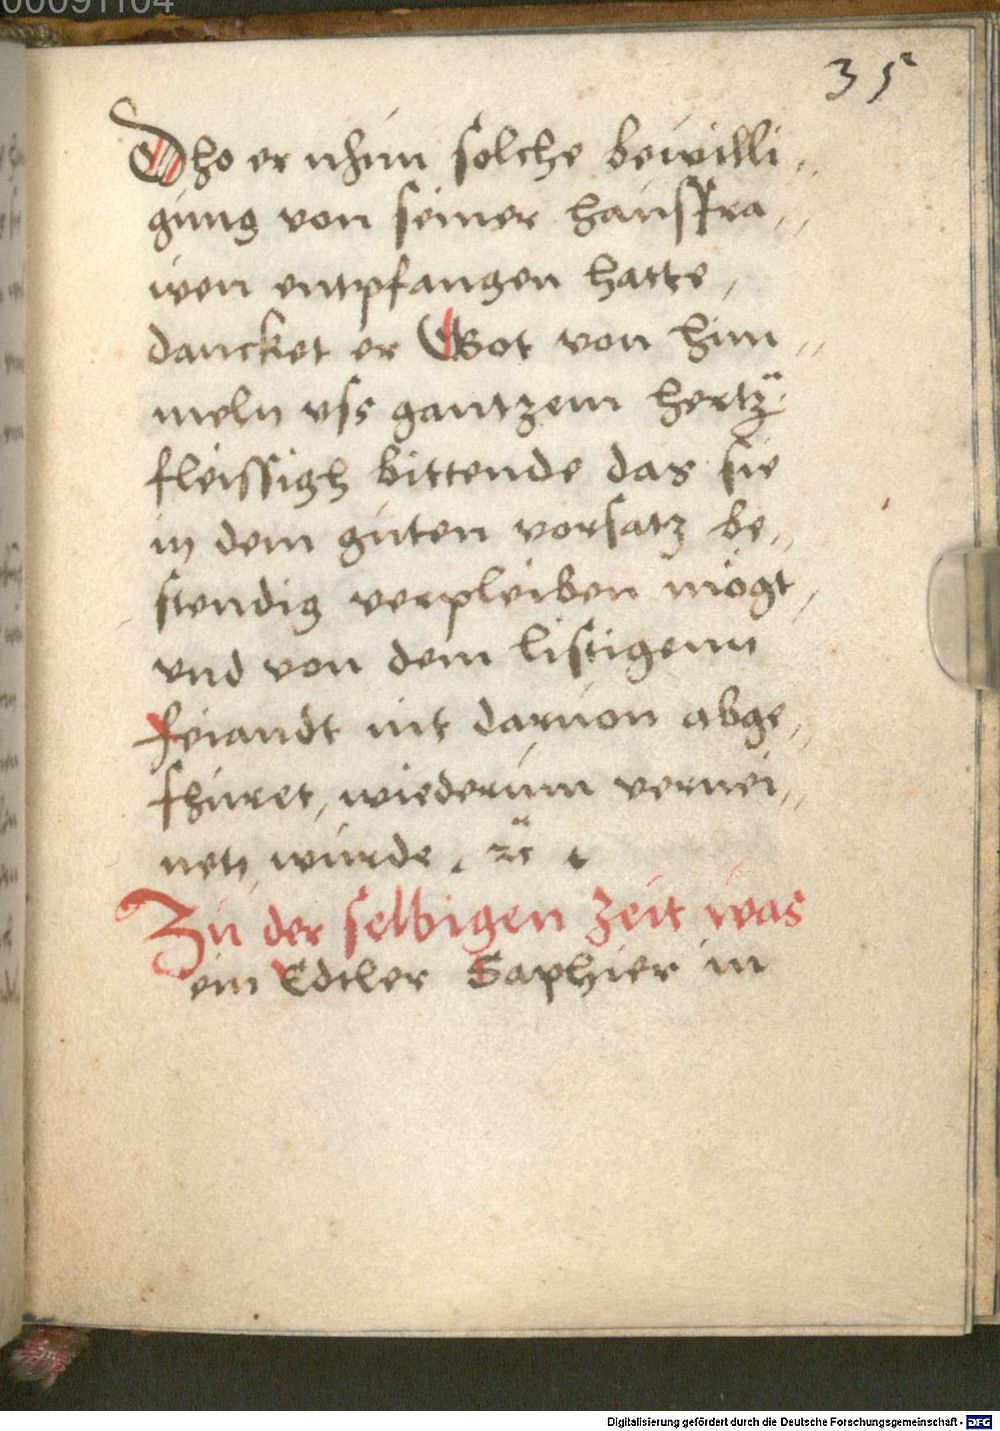 00091104
35
Dho er nhun solche bewilli„
gung von seiner hausfra„
wen entpfangen hatte,
dancket er Got von him„
meln vss gantzem hertz̈
fleissigh bittende das sie
in dem guten vorsatz be„
stendig verpleiben mögt,
vnd von dem listigenn
feiandt nit daruon abge„
fhuret, wiederum vernei„
net, wurde, ꝛc̈
Zu der selbigen zeit was
ein Edtler Saphier in
Digitalisierung gefördert durch die Deutsche Forschungsgemeinschaft - DFG